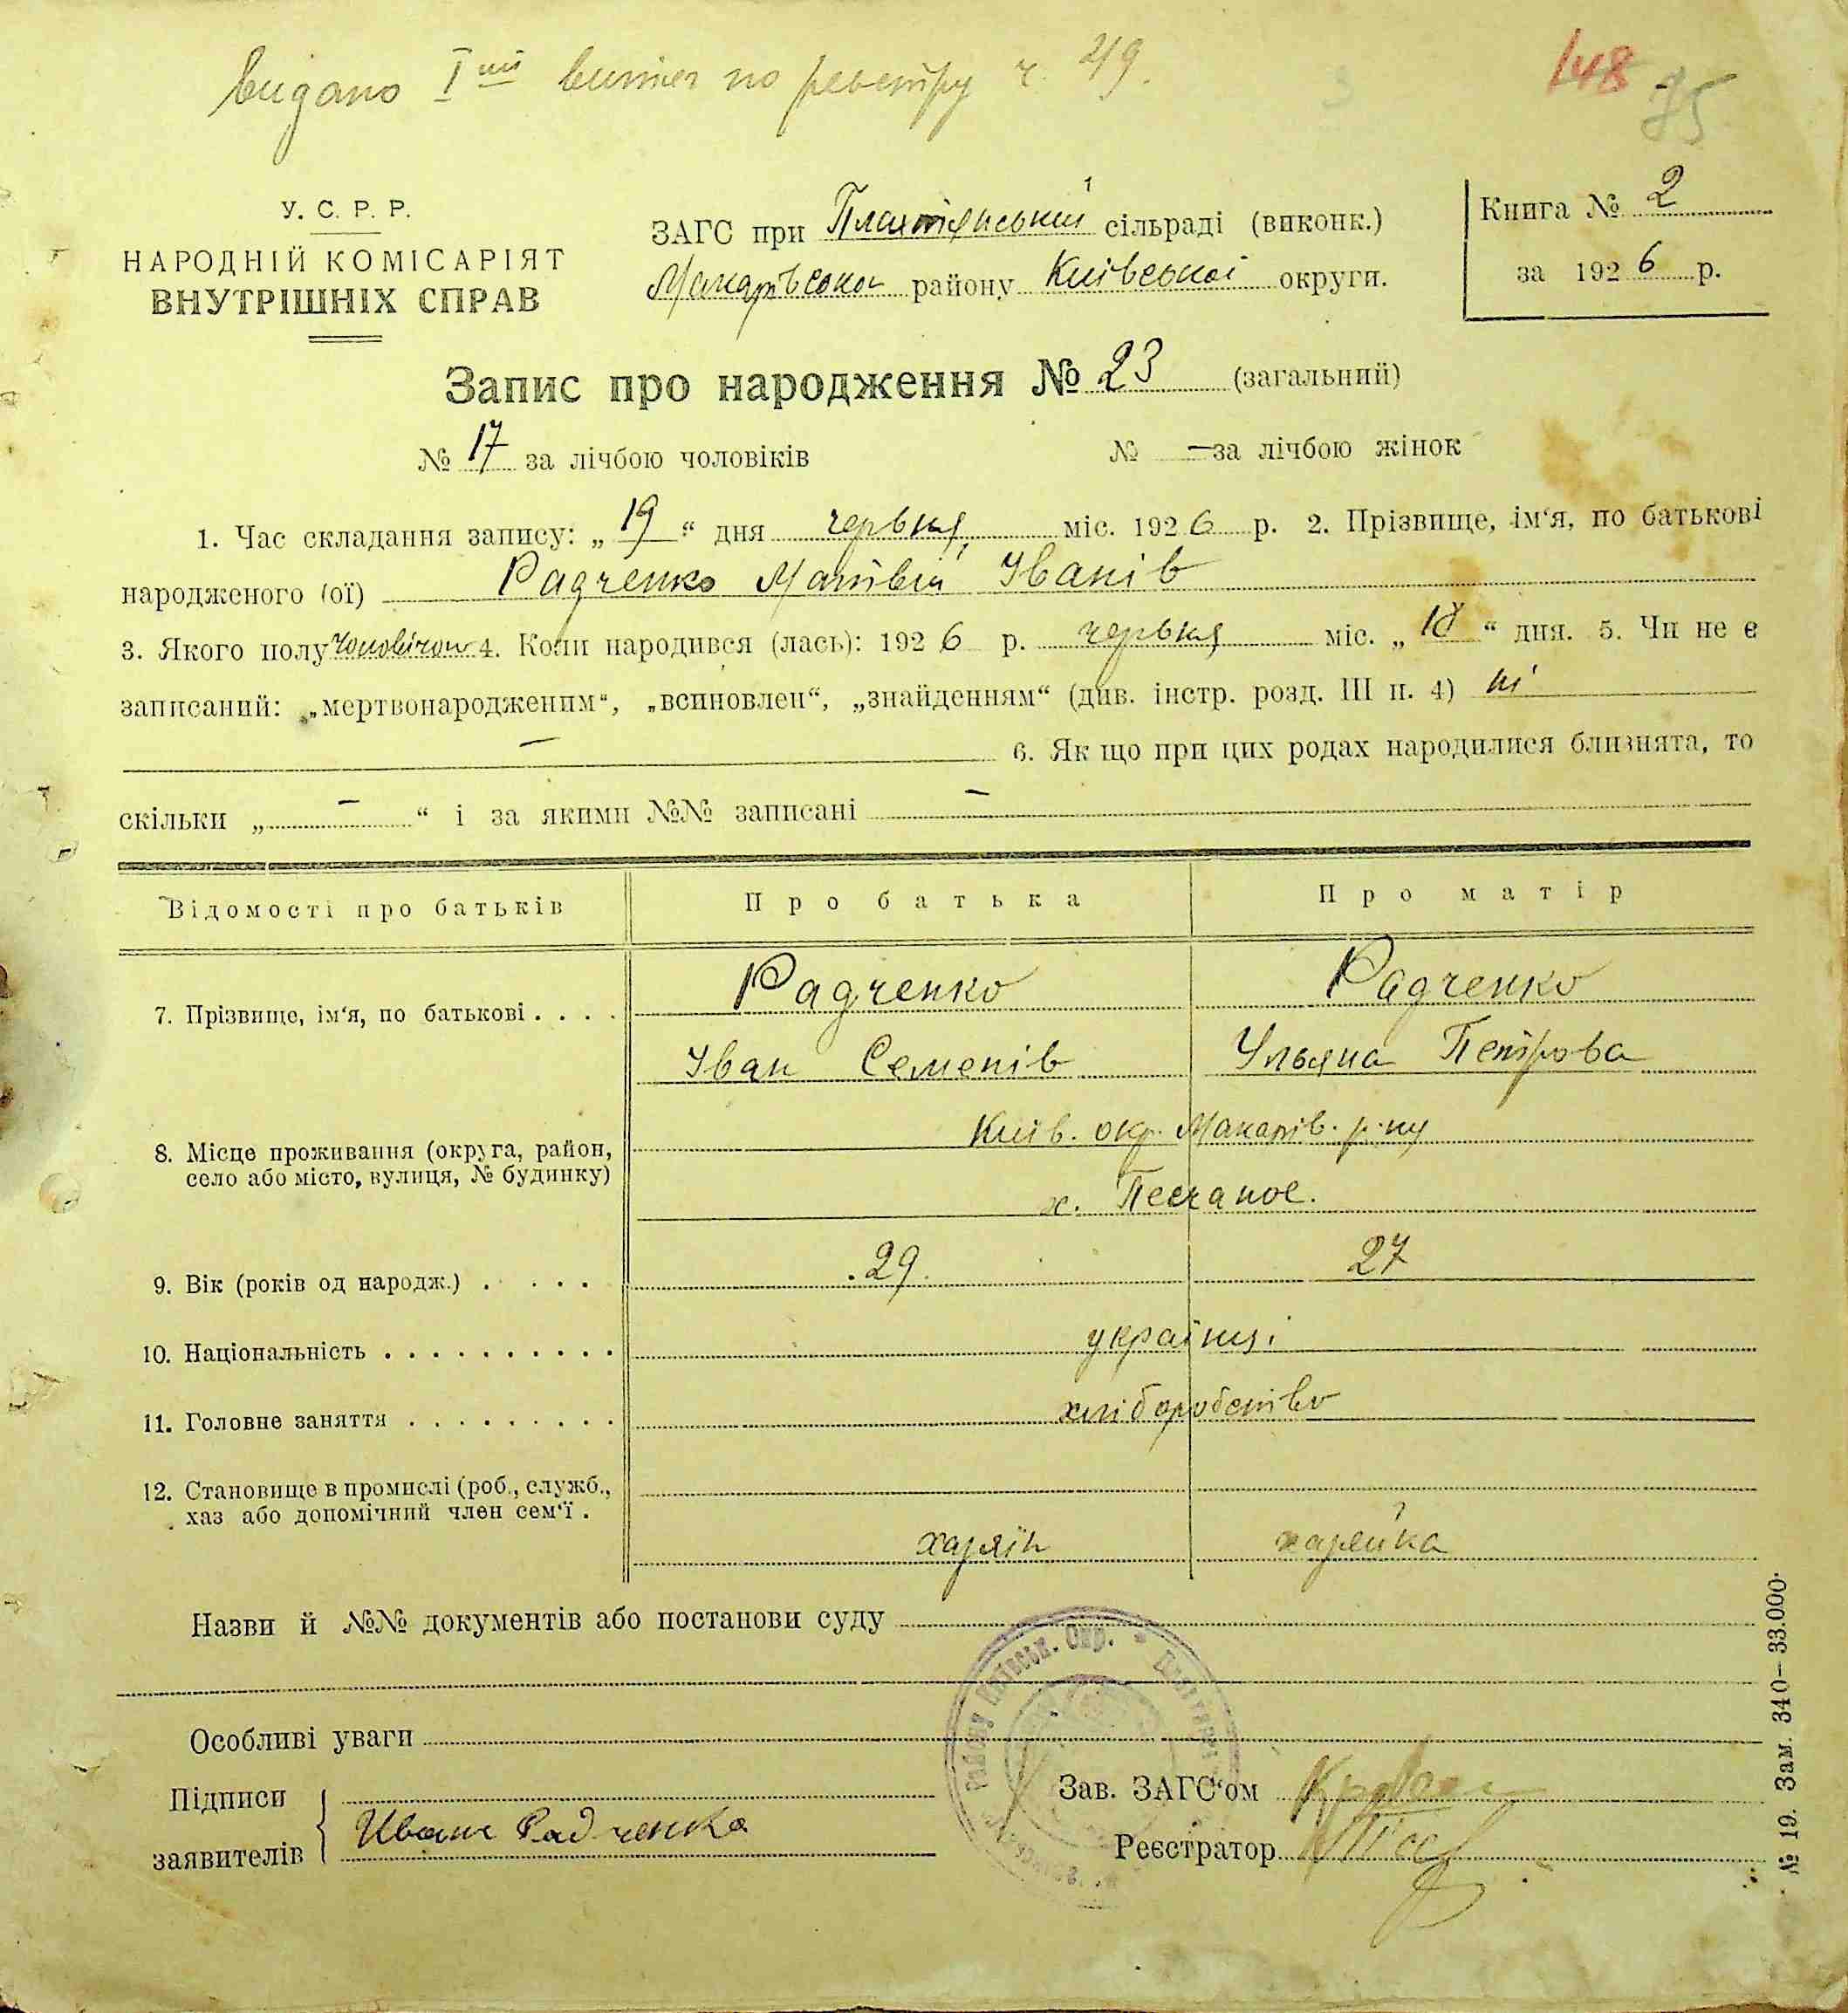 видано Iий витяг по реєстру ч. 219.
148 75
У. С. Р. Р.
НАРОДНІЙ КОМІСАРІЯТ
ВНУТРІШНІХ СПРАВ
ЗАГС при сільраді (виконк.)
Макарівської району Київської округи.
Книга № 2
за 1926 р.
Запис про народження № 23 (загальний)
№ 17 за лічбою чоловіків № — за лічбою жінок
1. Час складання запису: „19“ дня червня міс. 1926 р. 2. Прізвище, ім‘я, по батькові
народженого (ої) Радченко Матвій Іванів
3. Якого полу 4. Коли народився (лась): 1926 р. червня міс. „18“ дня. 5. Чи не є
записаний: „мертвонародженим“, „всиновлен“, „знайденням“ (див. інстр. розд. III п. 4) ні
— 6. Як що при цих родах народилися близнята, то
скільки „ — “ і за якими №№ записані —
Відомості про батьків Про батька Про матір
7. Прізвище, ім‘я, по батькові . . . . Радченко Радченко
Іван Семенів Ульяна Петрова
8. Місце проживання (округа, район, Київ. окр. Макарів. р-ну
село або місто, вулиця, № будинку) х. Песчаное.
9. Вік (років од народж.) . . . . . 29 27
10. Національність . . . . . . . . . . українці
11. Головне заняття . . . . . . . . . хліборобство
12. Становище в промислі (роб., служб.,
хаз або допомічний член сем‘ї .
Назви й №№ документів або постанови суду
Особливі уваги
Підписи
заявителів Иван Радченко
Зав. ЗАГС‘ом
Реєстратор
району Київськ. Окр.
№ 19. Зам. 340—33.000.